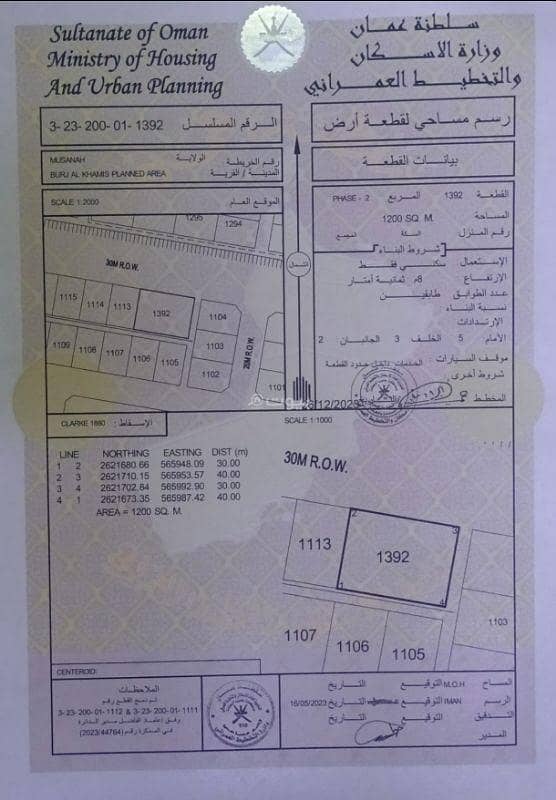 Sultanate of Oman
Ministry of Housing
And Urban Planning
سلطنة عمان
وزارة الاسكان
والتخطيط العمراني
الرقم المسلسل 3-23-200-01-1392
رسم مساحي لقطعة أرض
MUSANAH الولاية
رقم الخريطة
BURJ AL KHAMIS PLANNED AREA المدينة / القرية
بيانات القطعة
SCALE 1:2000 الموقع العام
القطعة 1392 المربع PHASE - 2
المساحة 1200 SQ. M.
رقم المنزل السكة المجمع
شروط البناء
الإستعمال سكني فقط
الإرتفاع 8م ثمانية أمتار
عدد الطوابق طابقين
نسبة البناء
الإرتدادات
الأمام 5 الخلف 3 الجانبان 2
موقف السيارات داخل حدود القطعة
شروط أخرى
المخطط
1295
1294
30M R.O.W.
1115
1114
1113
1392
1104
1103
1102
1101
1109
1108
1107
1106
1105
20M R.O.W.
الشمال
12/2023
CLARKE 1880 الإسقاط :
SCALE 1:1000
LINE NORTHING EASTING DIST (m)
1 2 2621680.66 565948.09 30.00
2 3 2621710.15 565953.57 40.00
3 4 2621702.84 565992.90 30.00
4 1 2621673.35 565987.42 40.00
AREA = 1200 SQ. M.
30M R.O.W.
1113
2
3
1392
1
4
1103
1107
1106
1105
CENTEROID:
الملاحظات
تم دمج القطع رقم
3-23-200-01-1112 & 3-23-200-01-1111
وفق إعتماد الفاضل مدير الدائرة
في المذكرة رقم (2023/44764)
المساح M.O.H التوقيع التاريخ
الرسم IMAN التوقيع التاريخ 16/05/2023
التدقيق التوقيع التاريخ
المدير